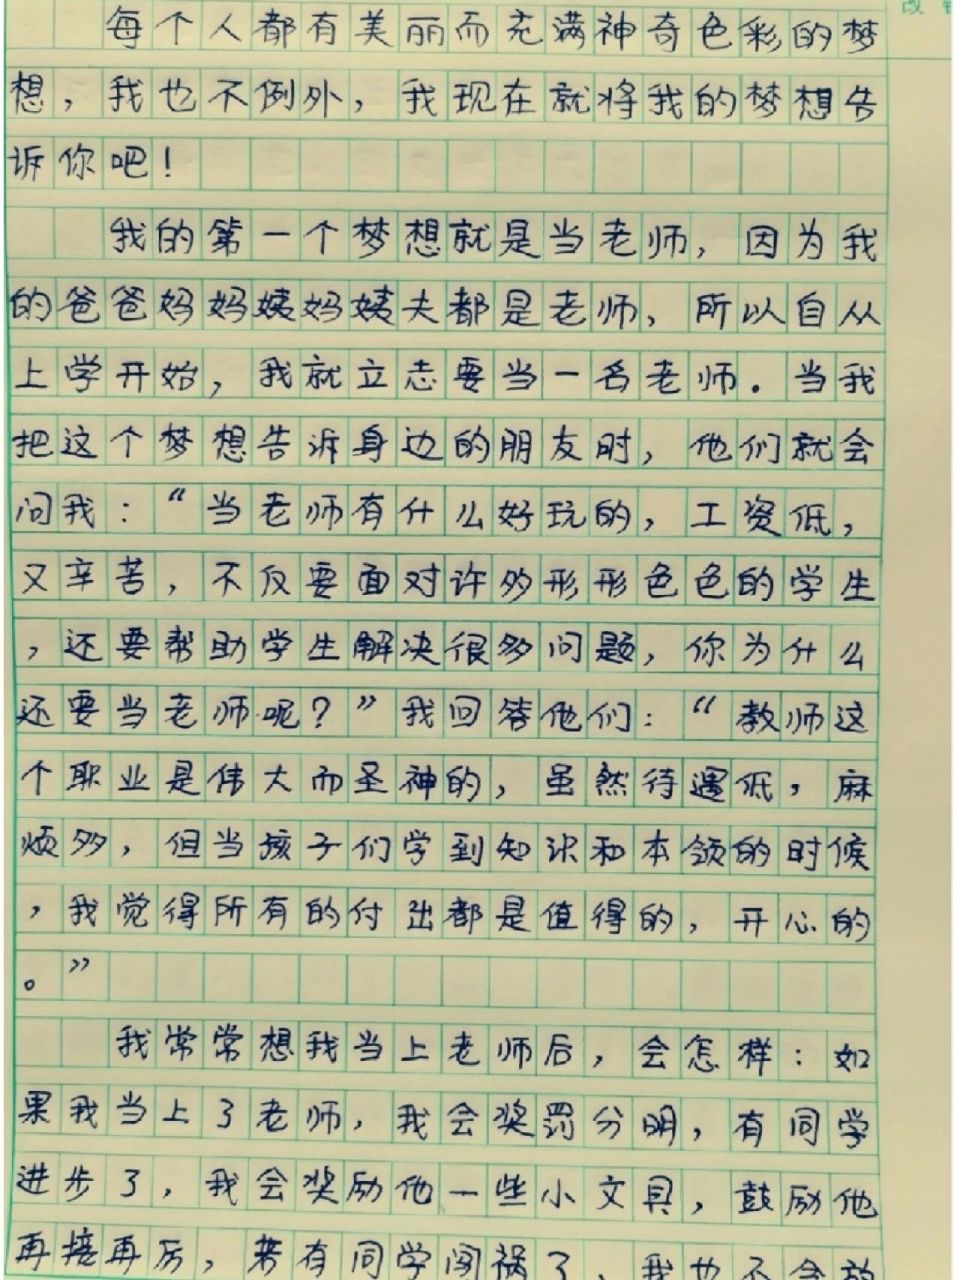 每个人都有美丽而充满神奇色彩的梦
想，我也不例外，我现在就将我的梦想告
诉你吧！
我的第一个梦想就是当老师，因为我
的爸爸妈妈姨妈姨夫都是老师，所以自从
上学开始，我就立志要当一名老师。当我
把这个梦想告诉身边的朋友时，他们就会
问我：“当老师有什么好玩的，工资低，
又辛苦，不仅要面对许多形形色色的学生
，还要帮助学生解决很多问题，你为什么
还要当老师呢？”我回答他们：“教师这
个职业是伟大而圣神的，虽然待遇低，麻
烦多，但当孩子们学到知识和本领的时候
，我觉得所有的付出都是值得的，开心的
。”
我常常想我当上老师后，会怎样：如
果我当上了老师，我会奖罚分明，有同学
进步了，我会奖励他一些小文具，鼓励他
再接再厉，若有同学闯祸了，我也不会放